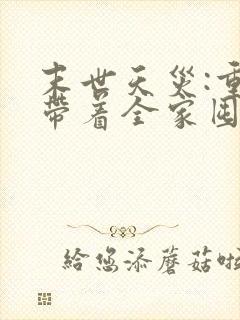 末世天災:重
帶着全家囤
給您添蘑菇啦